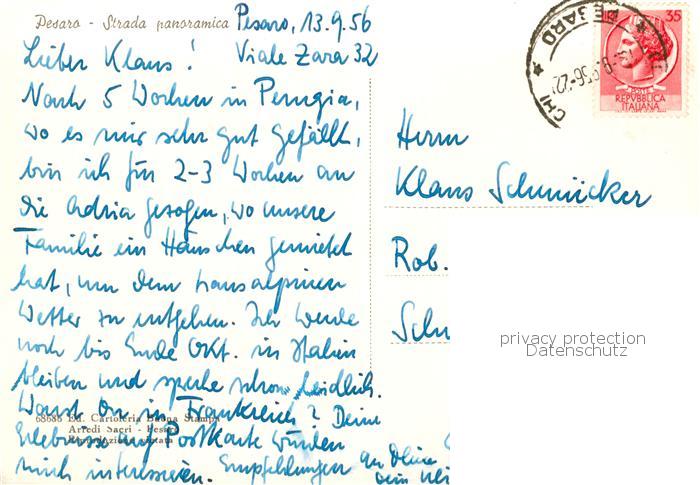 Pesaro - Strada panoramica
Pesaro, 13.9.56
Viale Zara 32
Lieber Klaus!
Nach 5 Wochen in Perugia,
wo es mir sehr gut gefällt,
bin ich für 2-3 Wochen an
die Adria gezogen, wo unsere
Familie ein Häuschen gemietet
hat, um dem transalpinen
Wetter zu entgehen. Ich werde
noch bis Ende Okt. in Italien
bleiben und spreche schon leidlich.
Warst Du in Frankreich? Deine
Erlebnisse auf Postkarte würden
mich interessieren. Empfehlungen an Deine
68686 Ed. Cartoleria Buona Stampa
Arredi Sacri - Pesaro
Herrn
Klaus Schmücker
Rob.
Sch
35
POSTE
REPVBBLICA
ITALIANA
PESARO
privacy protection
Datenschutz